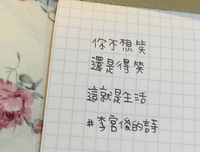 你不想笑
還是得笑
這就是生活
#李官後的詩